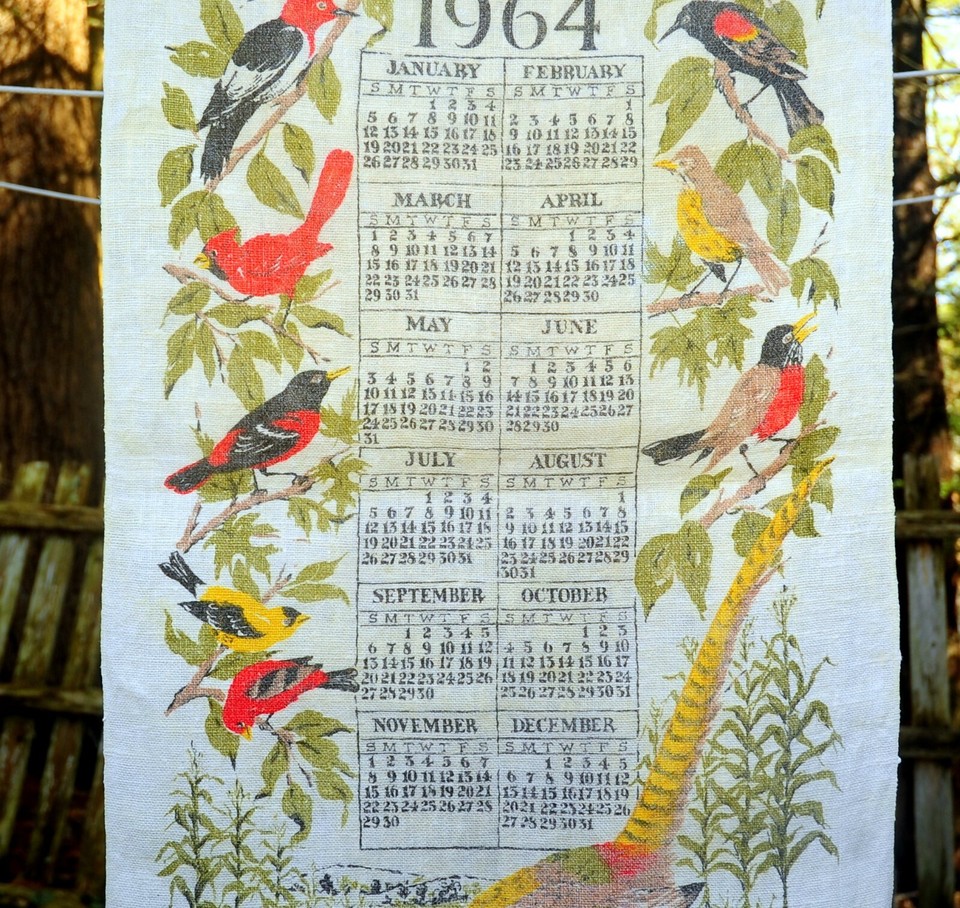 1964
JANUARY
S M T W T F S
1 2 3 4
5 6 7 8 9 10 11
12 13 14 15 16 17 18
19 20 21 22 23 24 25
26 27 28 29 30 31
FEBRUARY
S M T W T F S
1
2 3 4 5 6 7 8
9 10 11 12 13 14 15
16 17 18 19 20 21 22
23 24 25 26 27 28 29
MARCH
S M T W T F S
1 2 3 4 5 6 7
8 9 10 11 12 13 14
15 16 17 18 19 20 21
22 23 24 25 26 27 28
29 30 31
APRIL
S M T W T F S
1 2 3 4
5 6 7 8 9 10 11
12 13 14 15 16 17 18
19 20 21 22 23 24 25
26 27 28 29 30
MAY
S M T W T F S
1 2
3 4 5 6 7 8 9
10 11 12 13 14 15 16
17 18 19 20 21 22 23
24 25 26 27 28 29 30
31
JUNE
S M T W T F S
1 2 3 4 5 6
7 8 9 10 11 12 13
14 15 16 17 18 19 20
21 22 23 24 25 26 27
28 29 30
JULY
S M T W T F S
1 2 3 4
5 6 7 8 9 10 11
12 13 14 15 16 17 18
19 20 21 22 23 24 25
26 27 28 29 30 31
AUGUST
S M T W T F S
1
2 3 4 5 6 7 8
9 10 11 12 13 14 15
16 17 18 19 20 21 22
23 24 25 26 27 28 29
30 31
SEPTEMBER
S M T W T F S
1 2 3 4 5
6 7 8 9 10 11 12
13 14 15 16 17 18 19
20 21 22 23 24 25 26
27 28 29 30
OCTOBER
S M T W T F S
1 2 3
4 5 6 7 8 9 10
11 12 13 14 15 16 17
18 19 20 21 22 23 24
25 26 27 28 29 30 31
NOVEMBER
S M T W T F S
1 2 3 4 5 6 7
8 9 10 11 12 13 14
15 16 17 18 19 20 21
22 23 24 25 26 27 28
29 30
DECEMBER
S M T W T F S
1 2 3 4 5
6 7 8 9 10 11 12
13 14 15 16 17 18 19
20 21 22 23 24 25 26
27 28 29 30 31